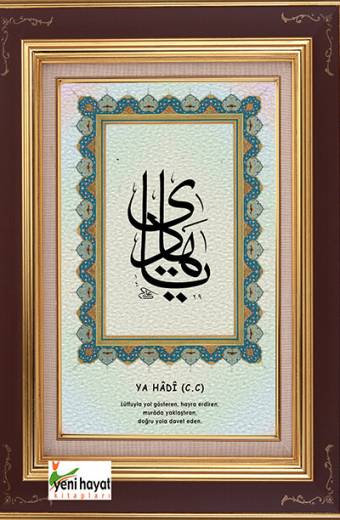 يا هادي
YA HÂDÎ (C.C)
Lütfuyla yol gösteren, hayra erdiren,
murâda yaklaştıran,
doğru yola davet eden.
yeni hayat
kitapları